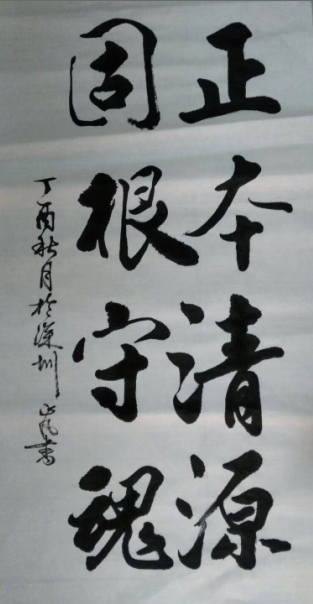 正本清源
固根守魂
丁酉秋月於深圳 正风书